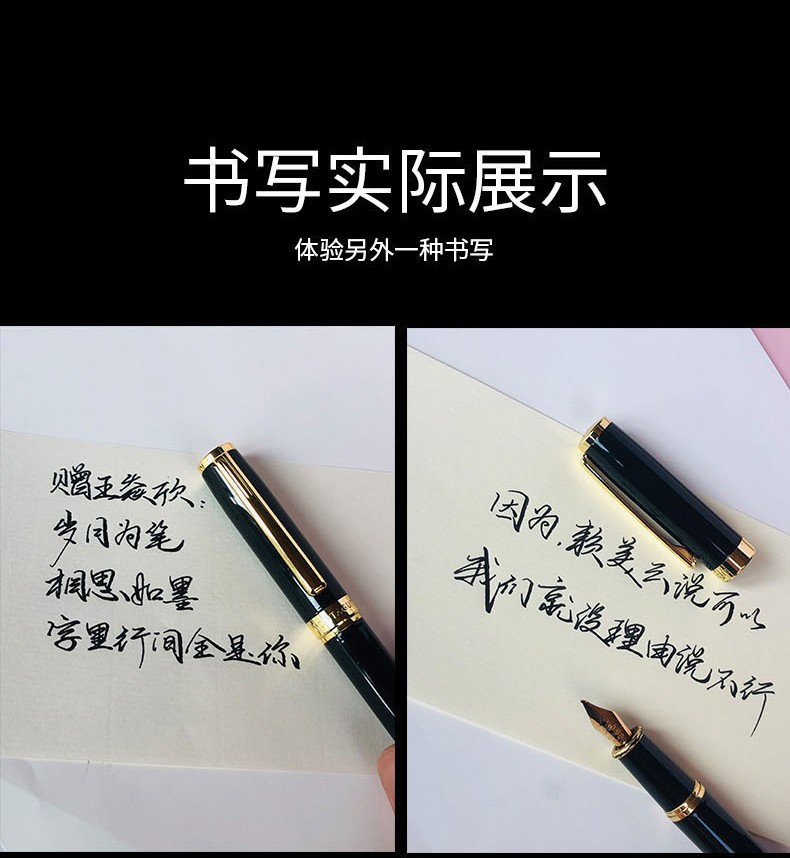 书写实际展示
体验另外一种书写
赠王焱欣：
岁月为笔
相思如墨
字里行间全是你
因为，赖美云说可以
我们就没理由说不行